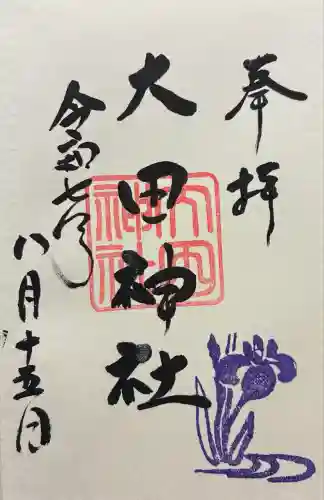 奉拝
大田神社
令和七年
八月十五日
大田
神社